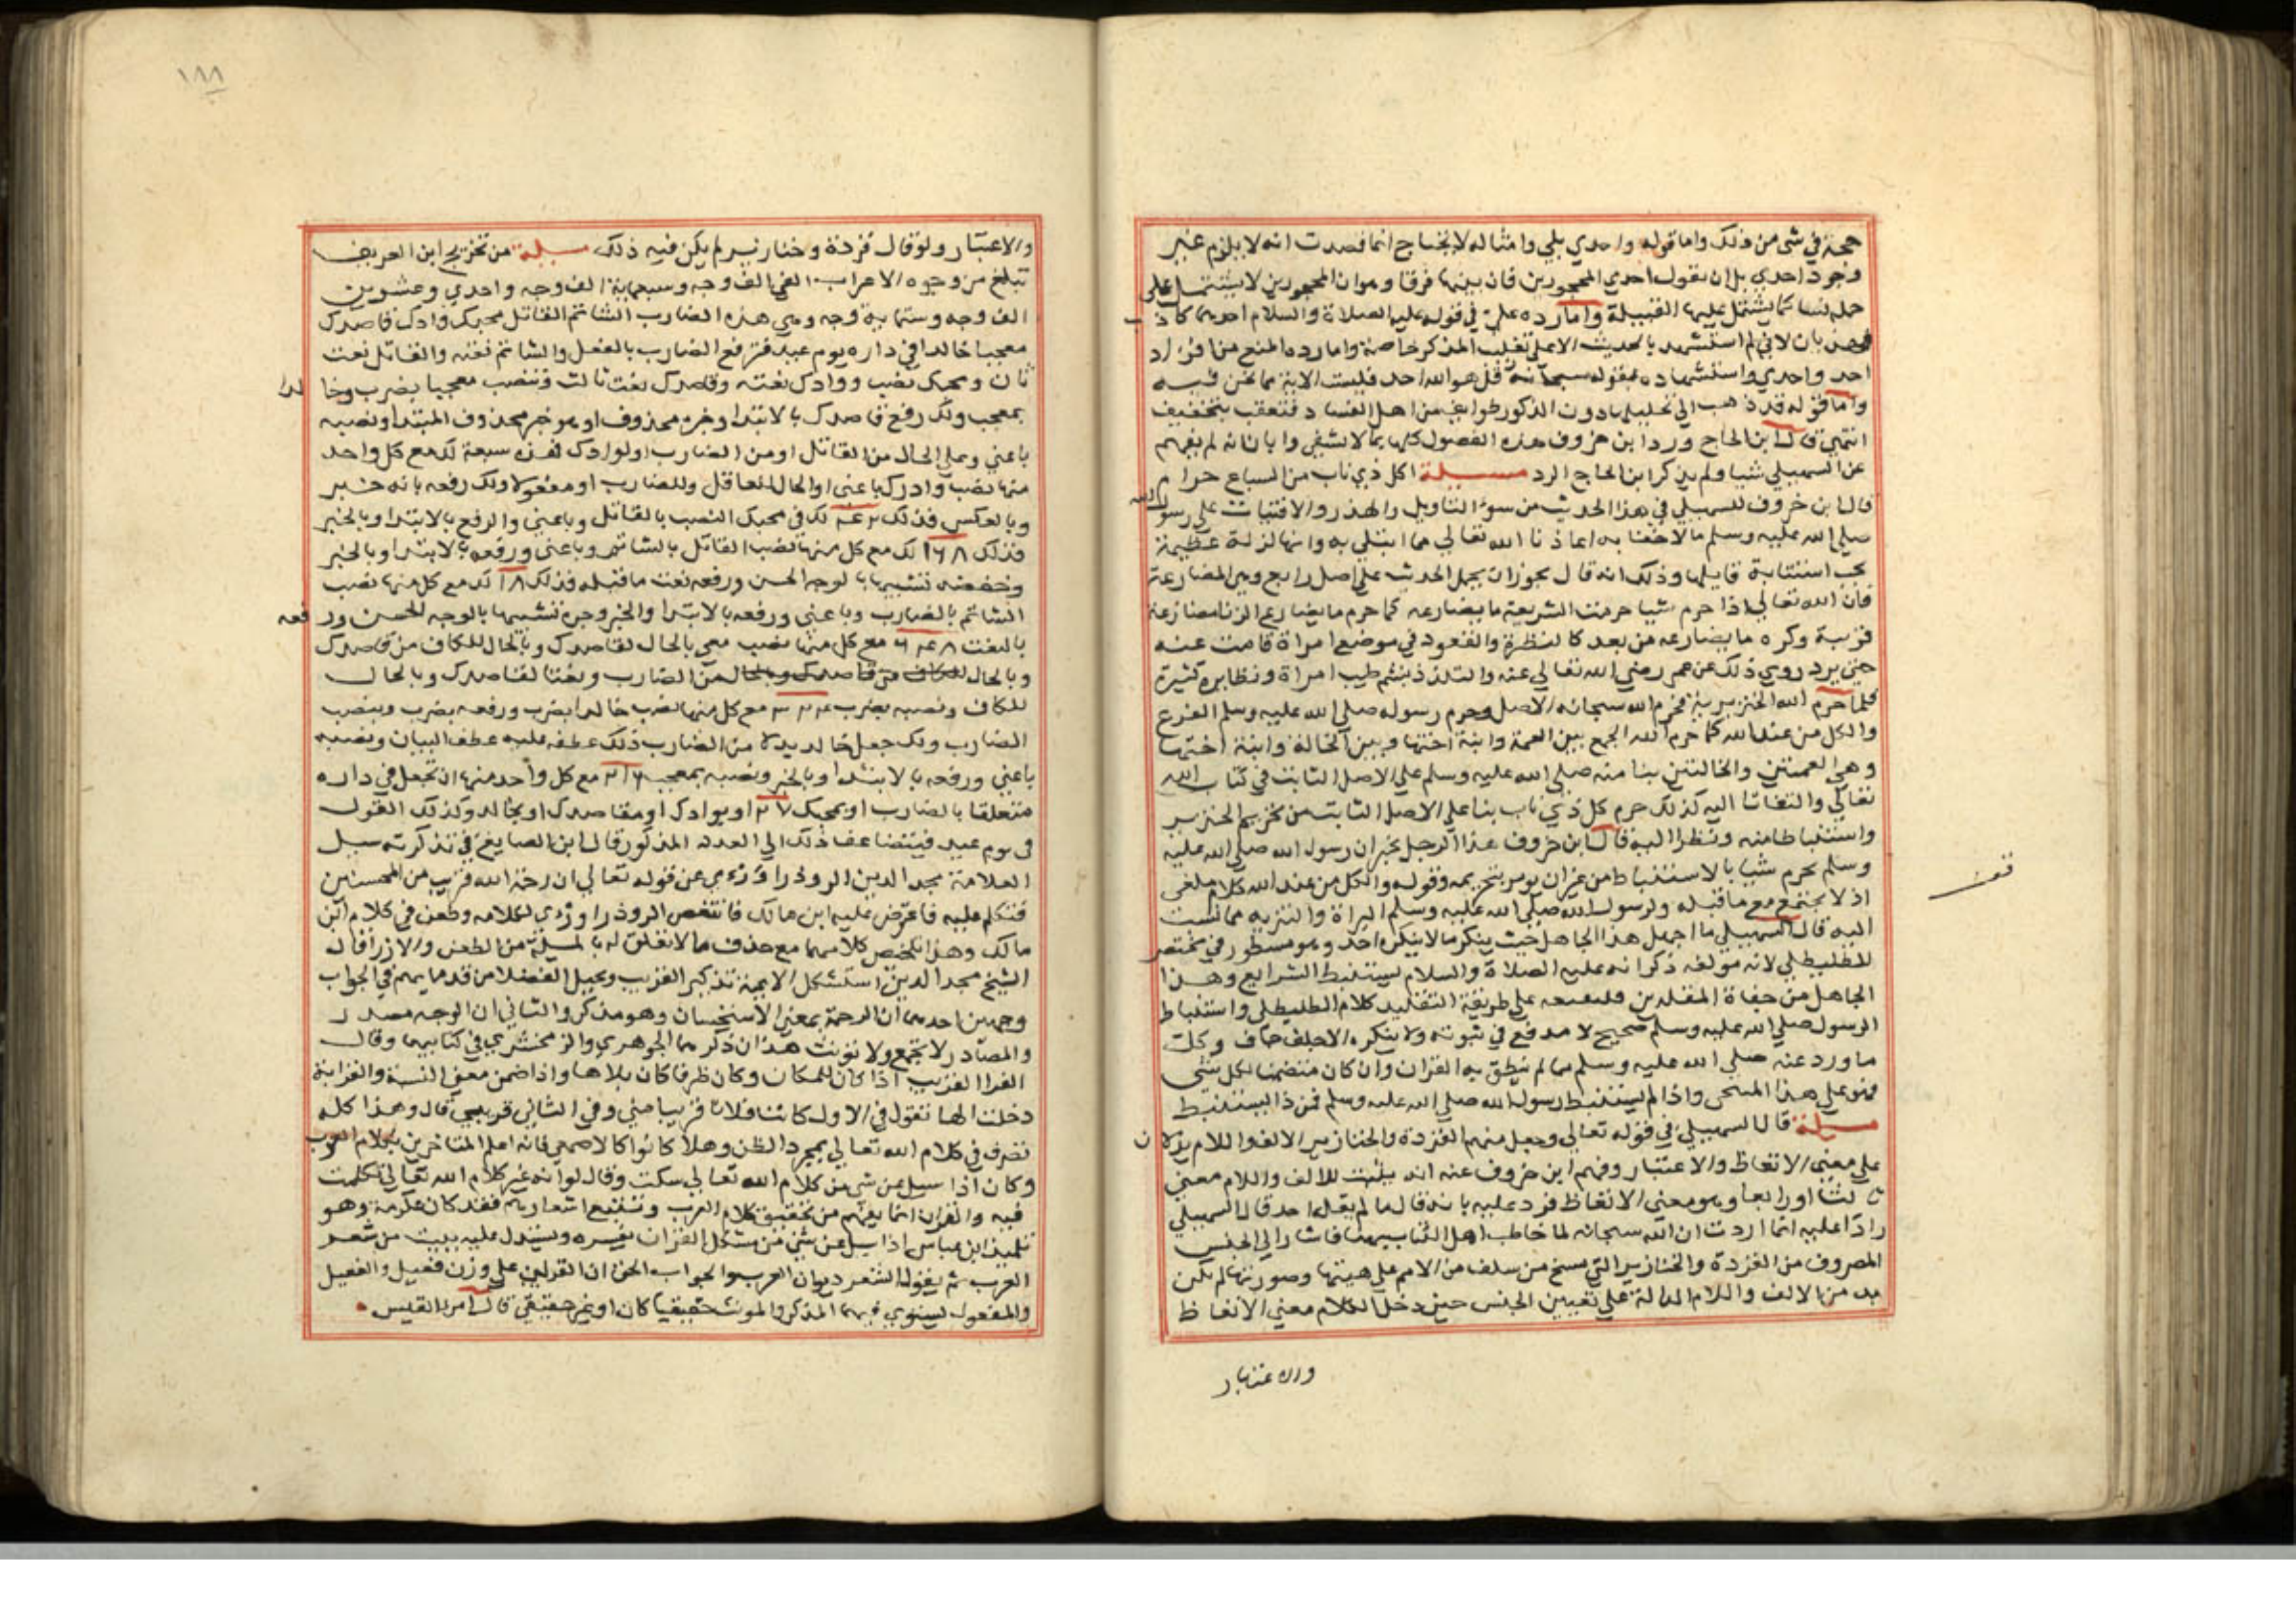 حجة في شي من ذلك واما قوله واحدي بلي وامثاله لا يحتاج انما قصدت انه لا يلزم غير
وجود احدي بل ان نقول احدي المحجورين فان بينها فرقا وهو ان المحجورين لا يشتمل على
حملة نسا كما يشتمل عليها القبيلة واما رده علي في قوله عليه الصلاة والسلام احدهما كاذب
بان لا في لم استشهد بالحديث الا على تغلب المذكر خاصة واما رده المنع من افراد
احد واحدي واستشهاده بقوله سبحانه قل هو الله احد فليست الاية مما نحن فيه
واما قوله قد ذهب الي تحليلها دون الذكور طوايف من اهل الفساد فتعقب بتخفيف
انتهي قال ابن الحاج ورد ابن خروف هذه الفصول كلها بما لا يشفي وابان انه لم يفهم
عن السهيلي شيا ولم يذكر ابن الحاج الرد مسيلة اكل ذي ناب من السباع حرام
قال ابن خروف للسهيلي في هذا الحديث من سوء التاويل والهذر والافتيات على رسول الله
صلي الله عليه وسلم ما لا خفا به اعاذنا الله تعالي مما ابتلي به وانها لزلة عظيمة
يجب استتابة قايلها وذلك انه قال يجوز ان يحمل الحديث علي اصل رابع وهي المضارعة
فان الله تعالي اذا حرم شيا حرمت الشريعة ما يضارعه كما حرم ما يضارع الزنا مضارعة
قريبة وكره ما يضارعه من بعد كالنظرة والقعود في موضع امراة قامت عنه
حتي يبرد روي ذلك عن عمر رضي الله تعالي عنه والتلذذ بشم طيب امراة ونظايره كثيرة
فلما حرم الله الخنزير فحرم الله سبحانه الاصل وحرم رسوله صلي الله عليه وسلم الفرع
والكل من عند الله كما حرم الله الجمع بين العمة وابنة اختها وبين الخالة وابنة اختها
وهي العمتين والخالتين بنا منه صلي الله عليه وسلم علي الاصل الثابت في كتاب الله
تعالي والتفاتا اليه كذلك حرم كل ذي ناب بنا علي الاصل الثابت من تحريم الخنزير
واستنباطا منه ونظرا اليه قال ابن خروف هذا الرجل يخبر ان رسول الله صلي الله عليه
وسلم يحرم شيا بالاستنباط من غير ان يومر بتحريمه وقوله والكل من عند الله كلام ملغى
اذ لا يجتمع مع ما قبله ولرسول الله صلي الله عليه وسلم البراة والتنزيه مما نسبت
اليه قال السهيلي ما اجهل هذا الجاهل حيث ينكر ما لا ينكره احد وهو مسطور في مختصر
الطليطلي لانه مولفه ذكر انه عليه الصلاة والسلام يستنبط الشرايع وهذا
الجاهل من حفاة المقلدين فليتبعه علي طريقة التقليد كلام الطليطلي واستنباط
الرسول صلي الله عليه وسلم صحيح لا مدفع في ثبوته ولا ينكره الا جلف جاف وكل
ما ورد عنه صلي الله عليه وسلم مما لم ينطق به القران وان كان متضمنا لكل شي
فهو علي هذا المنحى واذا لم يستنبط رسول الله صلي الله عليه وسلم فمن ذا يستنبط
مسيلة قال السهيلي في قوله تعالي وجعل منهم القردة والخنازير الالف واللام يدلان
علي معني الاتعاظ والاعتبار وفهم ابن خروف عنه انه يثبت للالف واللام معني
ثالثا او رابعا وهو معني الاتعاظ فرد عليه بانه قال ما لم يقله احد قال السهيلي
رادا عليه انما اردت ان الله سبحانه لما خاطب اهل الكتاب بهذا فاشار الي الجنس
المصروف من القردة والخنازير التي مسخ من سلف من الامم علي هيئتها وصورتها لم يكن
بد من الالف واللام الدالة علي تعيين الجنس حين دخل الكلام معني الاتعاظ
والاعتبار
١٨٨
والاعتبار ولو قال قردة وخنازير لم يكن فيه ذلك مسيلة من تخريج ابن العريف
تبلغ من وجوه الاعراب الفي الف وجه وسبعماية الف وجه واحدي وعشرين
الف وجه وستماية وجه وهي هذه الضارب الشاتم القاتل محبك وادك قاصدك
معجبا خالدا في داره يوم عيد فترفع الضارب بالفعل والشاتم نعته والقاتل نعت
ثان ومحبك نصب ووادك نعته وقاصدك نعت ثالث وتنصب معجبا بضرب وخالدا
بمعجب ولك رفع قاصدك بالابتدا وخبره محذوف او هو خبر محذوف المبتدا ونصبه
باعني وعلي الحال من القاتل او من الضارب او لوادك فهذه سبعة لك مع كل واحد
منها نصب وادك باعني او الحال للقاتل وللضارب او مفعولا ولك رفعه بانه خبر
وبالعكس فذلك لك في محبك النصب بالقاتل وباعني والرفع بالابتدا وبالخبر
فذلك ١٦٨ لك مع كل منها نصب القاتل بالشاتم وباعني ورفعه بالابتدا وبالخبر
وخفضه تشبيها بالوجه الحسن ورفعه نعت ما قبله فذلك لك مع كل منها نصب
الشاتم بالضارب وباعني ورفعه بالابتدا والخبر وجره تشبيها بالوجه الحسن ورفعه
بالنعت مع كل منها نصب معجبا بالحال لقاصدك وبالحال للكاف من قاصدك
وبالحال من الضارب ونعتا لقاصدك وبالحال
للكاف ونصبه بضرب مع كل منها نصب خالدا بضرب ورفعه بضرب وبنصب
الضارب ولك جعل خالد بدلا من الضارب ذلك عطفه عليه عطف البيان ونصبه
باعني ورفعه بالابتدا وبالخبر ونصبه بمعجب مع كل واحد منها ان تجعل في داره
متعلقا بالضارب او بمحبك او بوادك او بقاصدك او بخالد وكذلك القول
في يوم عيد فيتضاعف ذلك الي العدد المذكور قال ابن الصايغ في تذكرته سيل
العلامة مجد الدين الروذراوري عن قوله تعالي ان رحمة الله قريب من المحسنين
فتكلم عليه فاعترض عليه ابن مالك فانتقص الروذراوري لكلامه وطعن في كلام ابن
مالك وهذا ملخص كلامهما مع حذف ما لا تعلق له بالمسيلة من الطعن والازرا قال
الشيخ مجد الدين استشكل الايمة تذكير القريب ويحيل الفضلا من قدمايهم في الجواب
وجهين احدهما ان الرحمة بمعني الاستحسان وهو مذكر والثاني ان الوجه مصدر
والمصادر لا تجمع ولا تونث هذان ذكرهما الجوهري والزمخشري في كتابيهما وقال
الفرا القريب اذا كان للمكان وكان ظرفا كان بلا ها واذا ضمن معني النسبة والقرابة
دخلت الها تقول في الاول كانت فلانة قريبا مني وفي الثاني قريبتي قال وهذا كله
تصرف في كلام الله تعالي بمجرد الظن وهلا كانوا كالاصمعي فانه اعلم المتاخرين بكلام العرب
وكان اذا سيل عن شي من كلام الله تعالي سكت وقال لو انه غير كلام الله تعالي تكلمت
فيه والقران انما يفهم من تحقيق كلام العرب وتتبع اشعارهم فقد كان عكرمة وهو
تلميذ ابن عباس اذا سيل عن شي من مشكل القران يفسره ويستدل عليه ببيت من شعر
العرب ثم يقول الشعر ديوان العرب والجواب الحق ان القريب علي وزن فعيل والفعيل
والمفعول يستوي فيهما المذكر والمونث حقيقيا كان او غير حقيقي قال امرا القيس